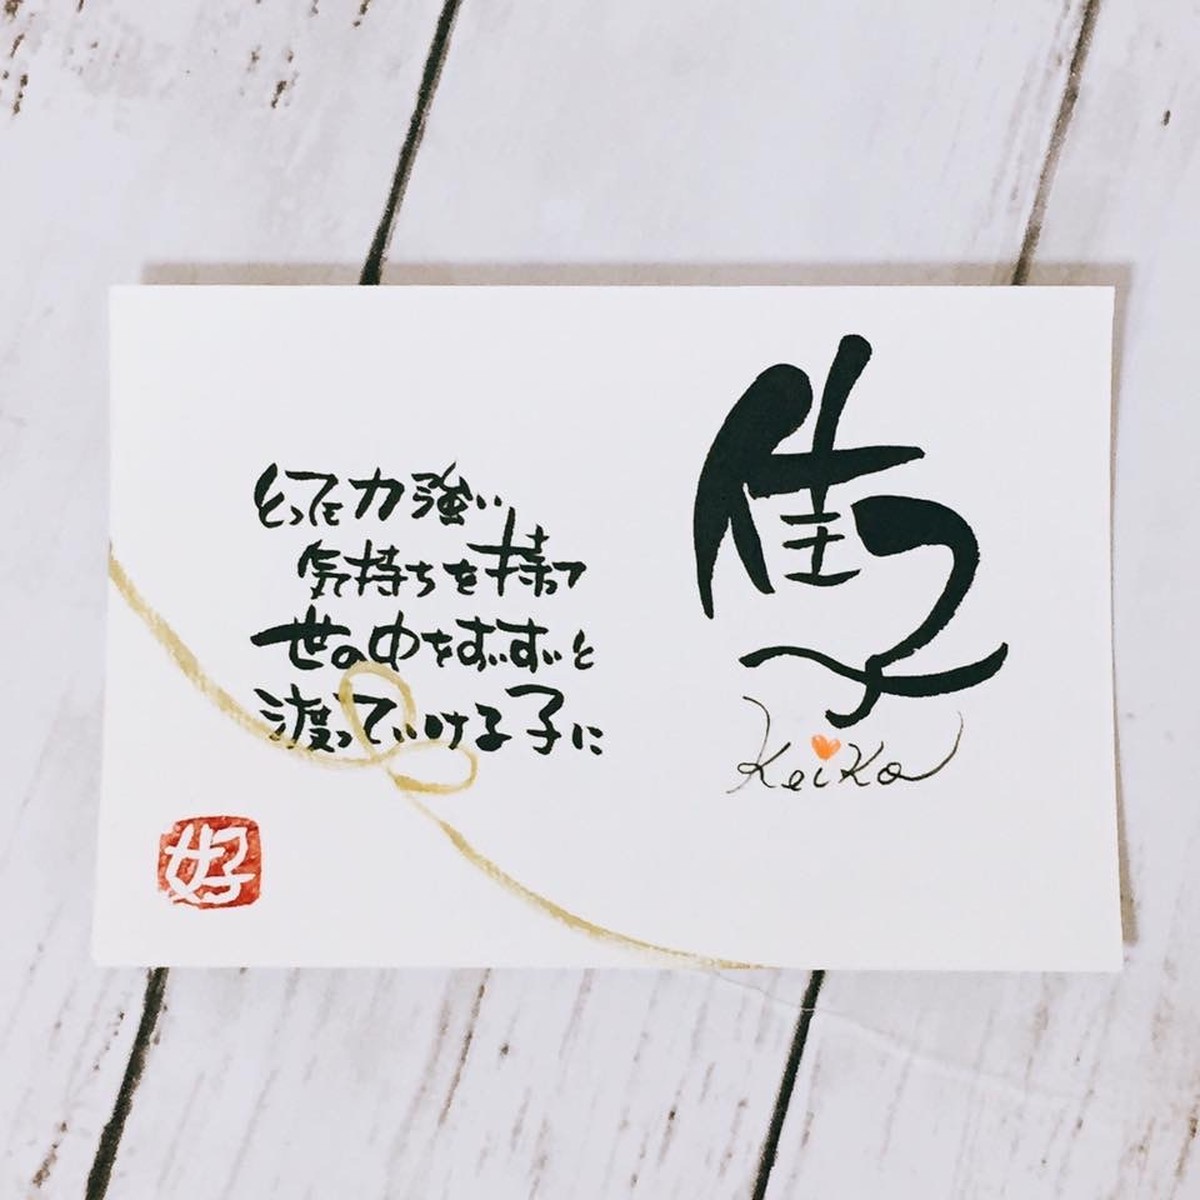 佳子
KeiKo
とっても力強い
気持ちを持って
世の中をずいずいと
渡っていける子に
好